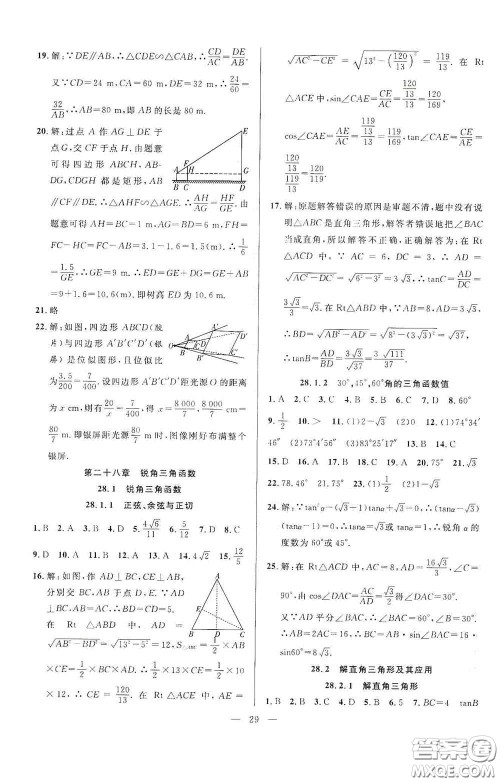 19. 解:∵DE∥AB,∴△CDE∽△CAB,∴CD/CA=DE/AB.
又∵CD=24 m,CA=60 m,DE=32 m,∴24/60=
32/AB,∴AB=80 m,即AB的长是80 m.
20. 解:过点A作AG⊥DE于
点G,交CF于点H,由题意
可得四边形ABCH,ABDG,
CDGH都是矩形,AB
∥CF∥DE,∴△AHF∽△AGE.∴AH/AG=HF/GE.由
题意可得AH=BC=1 m,AG=BD=6 m,FH=
FC-HC=FC-AB=3.1-1.6=1.5(m),∴1/6
=1.5/GE,∴GE=9 m,∴ED=GE+DG=GE+AB
=9+1.6=10.6(m),即树高ED为10.6 m.
21. 略
22. 解:如图,四边形ABCD(胶
片)与四边形A′B′C′D′(银
幕)是位似图形,且位似比
为3.5/200=7/400.设四边形A′B′C′D′距光源O的距离
为x cm,则有20/x=7/400,解得x=8 000/7,8 000/7 cm=
80/7 m,即银屏距光源80/7 m时,图像刚好布满整个
银屏.
第二十八章 锐角三角函数
28.1 锐角三角函数
28.1.1 正弦、余弦与正切
1. B 2. D 3. A 4. B 5. D 6. 4√6/11 7. 5/12 8. C
9. D 10. A 11. A 12. D 13. A 14. 4√2 15. 12/5
16. 解:如图,作AD⊥BC,CE⊥AB,
分别交BC,AB于点D,E.
∵AB=AC,∴BD=CD=5.
在Rt△ABD中,AD=
√(AB²-BD²)=√(13²-5²)=12,S△ABC=1/2×AB
×CE=1/2×BC×AD,∴1/2×13×CE=1/2×10×
12,∴CE=120/13.在Rt△ACE中,AE=
√(AC²-CE²)=√(13²-(120/13)²)=119/13.在Rt
△ACE中,sin∠CAE=CE/AC=(120/13)/13=120/169,
cos∠CAE=AE/AC=(119/13)/13=119/169,tan∠CAE=CE/AE=
(120/13)/(119/13)=120/119.
17. 解:原题解答错误的原因是审题不清,题中没有
说明△ABC是直角三角形,解答者错误地把△ABC
当成直角,所以解答不正确.正确解答为:在Rt
△ADC中,∵AC=6,DC=3,∴AD=
√(AC²-DC²)=√(6²-3²)=3√3,∴tanC=AD/DC=
3√3/3=√3.在Rt△ABD中,∵AB=8,∴BD=
√(AB²-AD²)=√(8²-(3√3)²)=√37,
∴tanB=AD/BD=3√3/√37=3√111/37.
28.1.2 30°,45°,60°角的三角函数值
1. A 2. C 3. C 4. A 5. D 6. D 7. B 8. C
9. 1/2 10. > 11. √2 12. (1)74°34′
(2)73°4′56″ (3)83°25′17″ 13. B 14. C
15. D 16. A 17. A 18. D 19. D 20. A
21. D 22. 60° 23. 75°
24. 解:∵tan²α-(√3+1)tanα+√3=0,∴(tanα-1)
(tanα-√3)=0,∴tanα=1或tanα=√3,∴锐角α的
度数是60°或45°.
25. 解:在Rt△ACD中,AC=8,AD=16√3/3,∠C=
90°,由cos∠DAC=AC/AD=8/(16√3/3)=√3/2,得∠DAC=30°.
又∵AD平分∠BAC,∴∠BAC=60°,∴∠B=90°
-∠BAC=30°,∴AB=2AC=16,∴BC=AB·
sin60°=8√3.
28.2 解直角三角形及其应用
28.2.1 解直角三角形
1. B 2. A 3. D 4. A 5. A 6. D 7. BC=4 tanB
— 29 —
作业帮
MXQE.COM